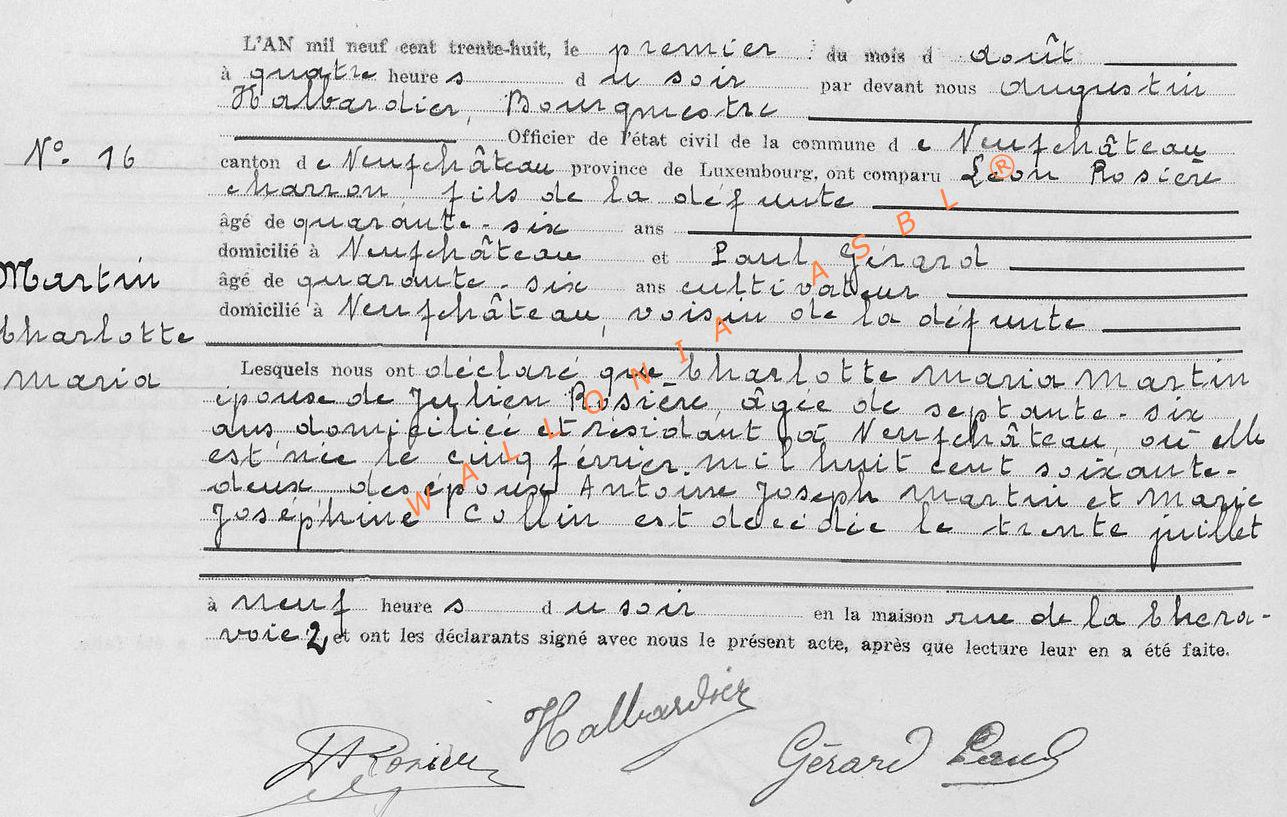 L'AN mil neuf cent trente-huit, le premier du mois d août
à quatre heure s d u soir par devant nous Augustin
Halbardier, Bourgmestre
Officier de l'état civil de la commune d e Neufchâteau
N° 16
canton d e Neufchâteau province de Luxembourg, ont comparu Léon Rosière
charron fils de la défunte
âgé de quarante-six ans
domicilié à Neufchâteau et Paul Gérard
âgé de quarante-six ans cultivateur
domicilié à Neufchâteau, voisin de la défunte
Martin
Charlotte
Maria
Lesquels nous ont déclaré que Charlotte Maria Martin
épouse de Julien Rosière, âgée de septante-six
ans, domiciliée et résidant à Neufchâteau, où elle
est née le cinq février mil huit cent soixante-
deux, des époux Antoine Joseph Martin et Marie
Josephine Collin est décédée le trente juillet
à neuf heure s d u soir en la maison rue de la Chera-
voie 2 et ont les déclarants signé avec nous le présent acte, après que lecture leur en a été faite.
Halbardier
Gérard Paul
WALLONIA ASBL ®